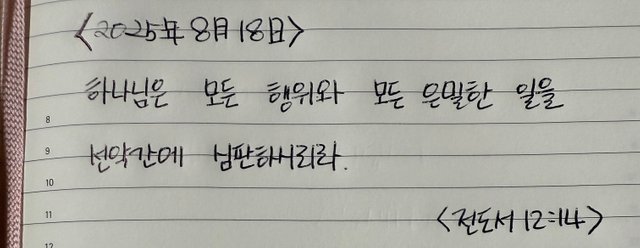 <2025年 8月 18日>
하나님은 모든 행위와 모든 은밀한 일을
8
선악간에 심판하시리라.
9
10
<전도서 12:14>
11
12